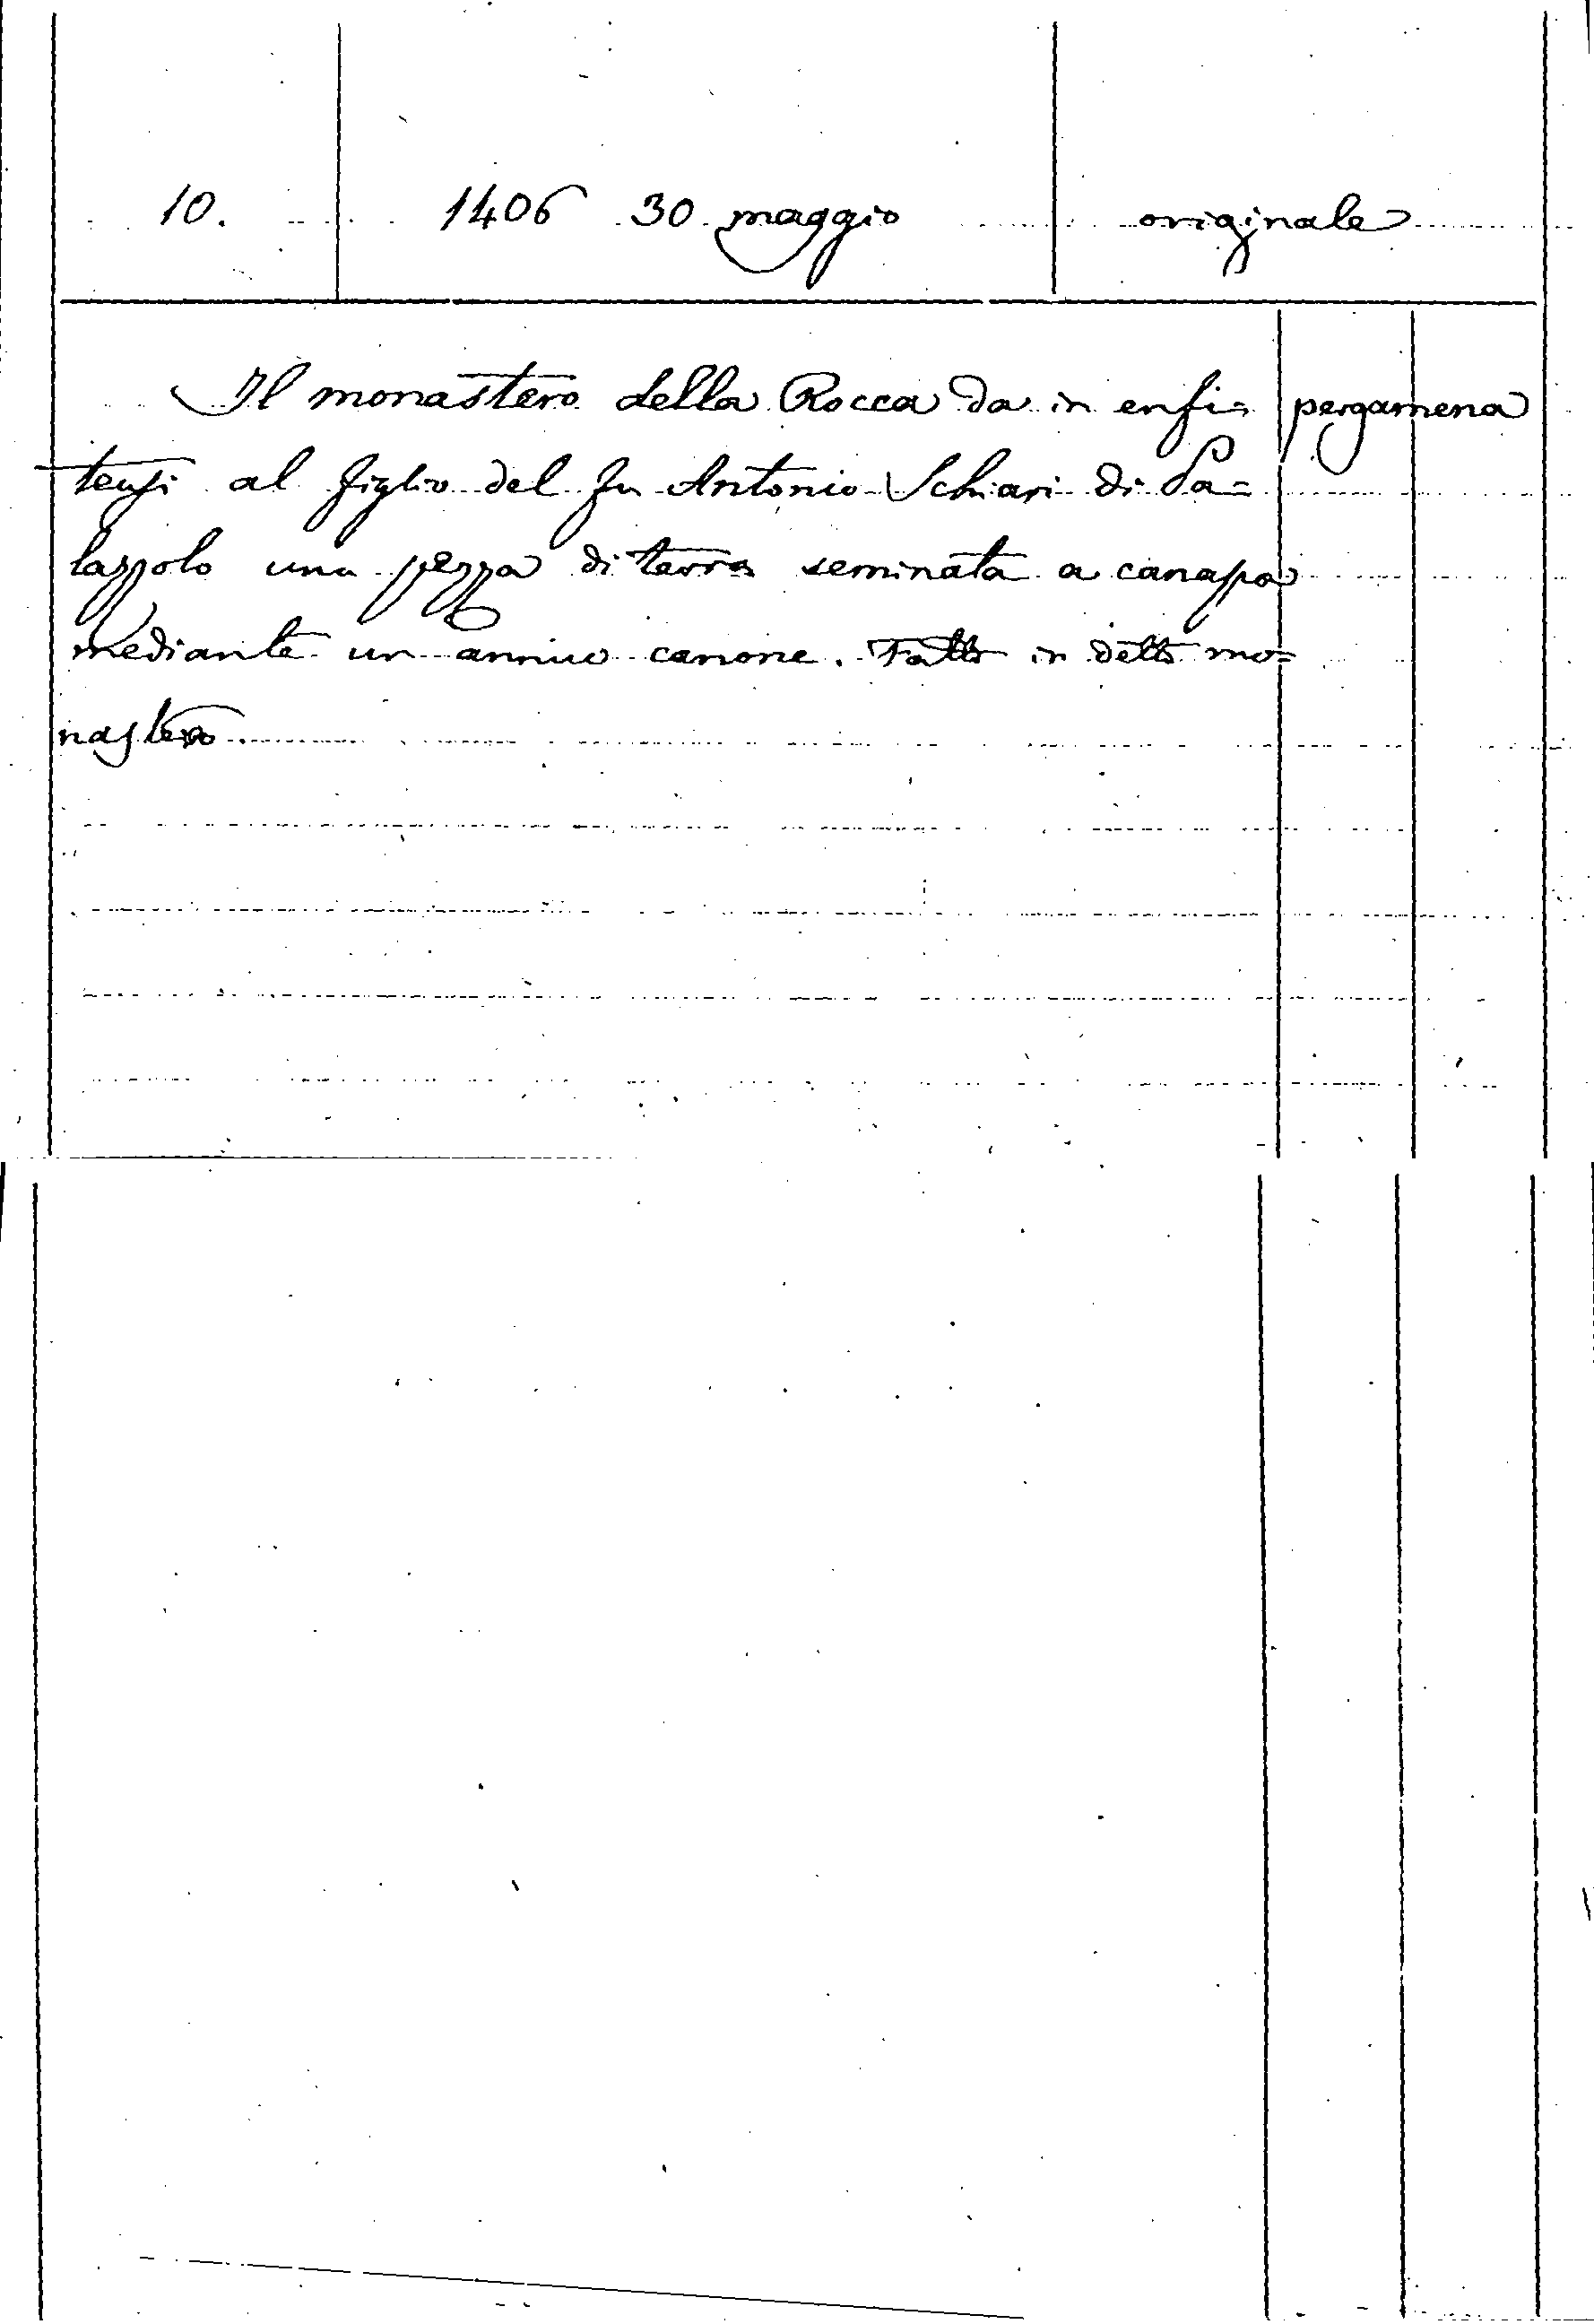 10. 1406 30 maggio originale
Il monastero della Rocca da in enfi= pergamena
teusi al figlio del fu Antonio Schiari di Pa=
lazzolo una pezza di terra seminata a canapa
mediante un annuo canone. Fatto in detto mo=
nastero.